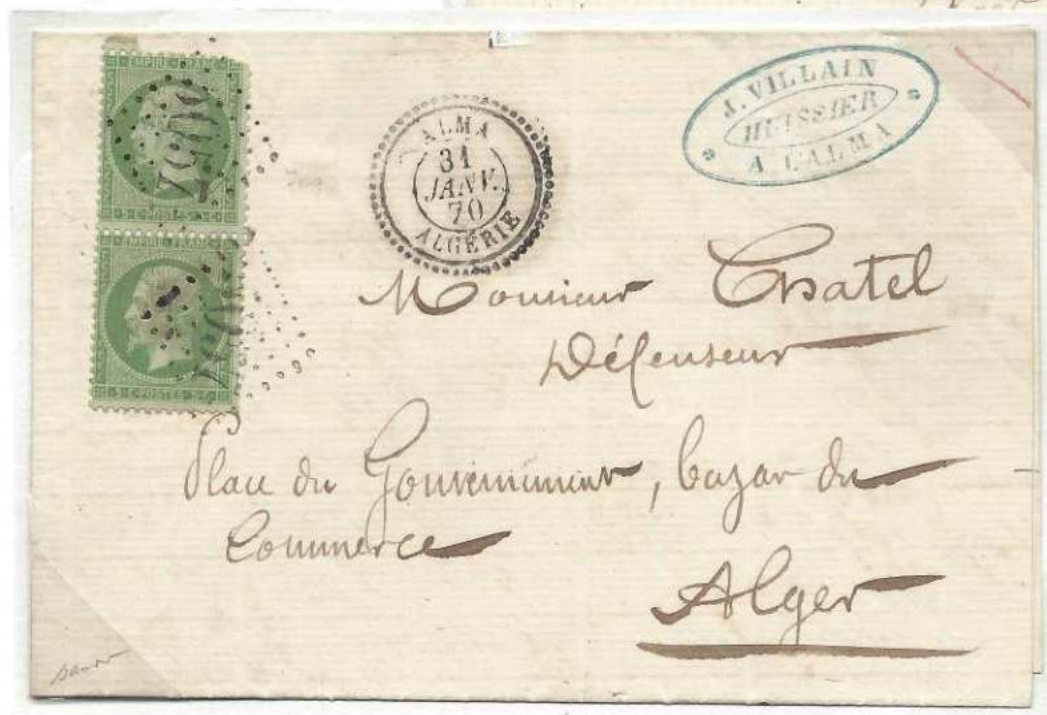 EMPIRE FRANC
5 C POSTES 5 C
EMPIRE FRANC
5 C POSTES 5 C
5057
L'ALMA
31
JANV.
70
ALGÉRIE
J. VILLAIN
HUISSIER
A L'ALMA
Monsieur Chatel
Défenseur
Place du Gouvernement, bazar du
Commerce
Alger